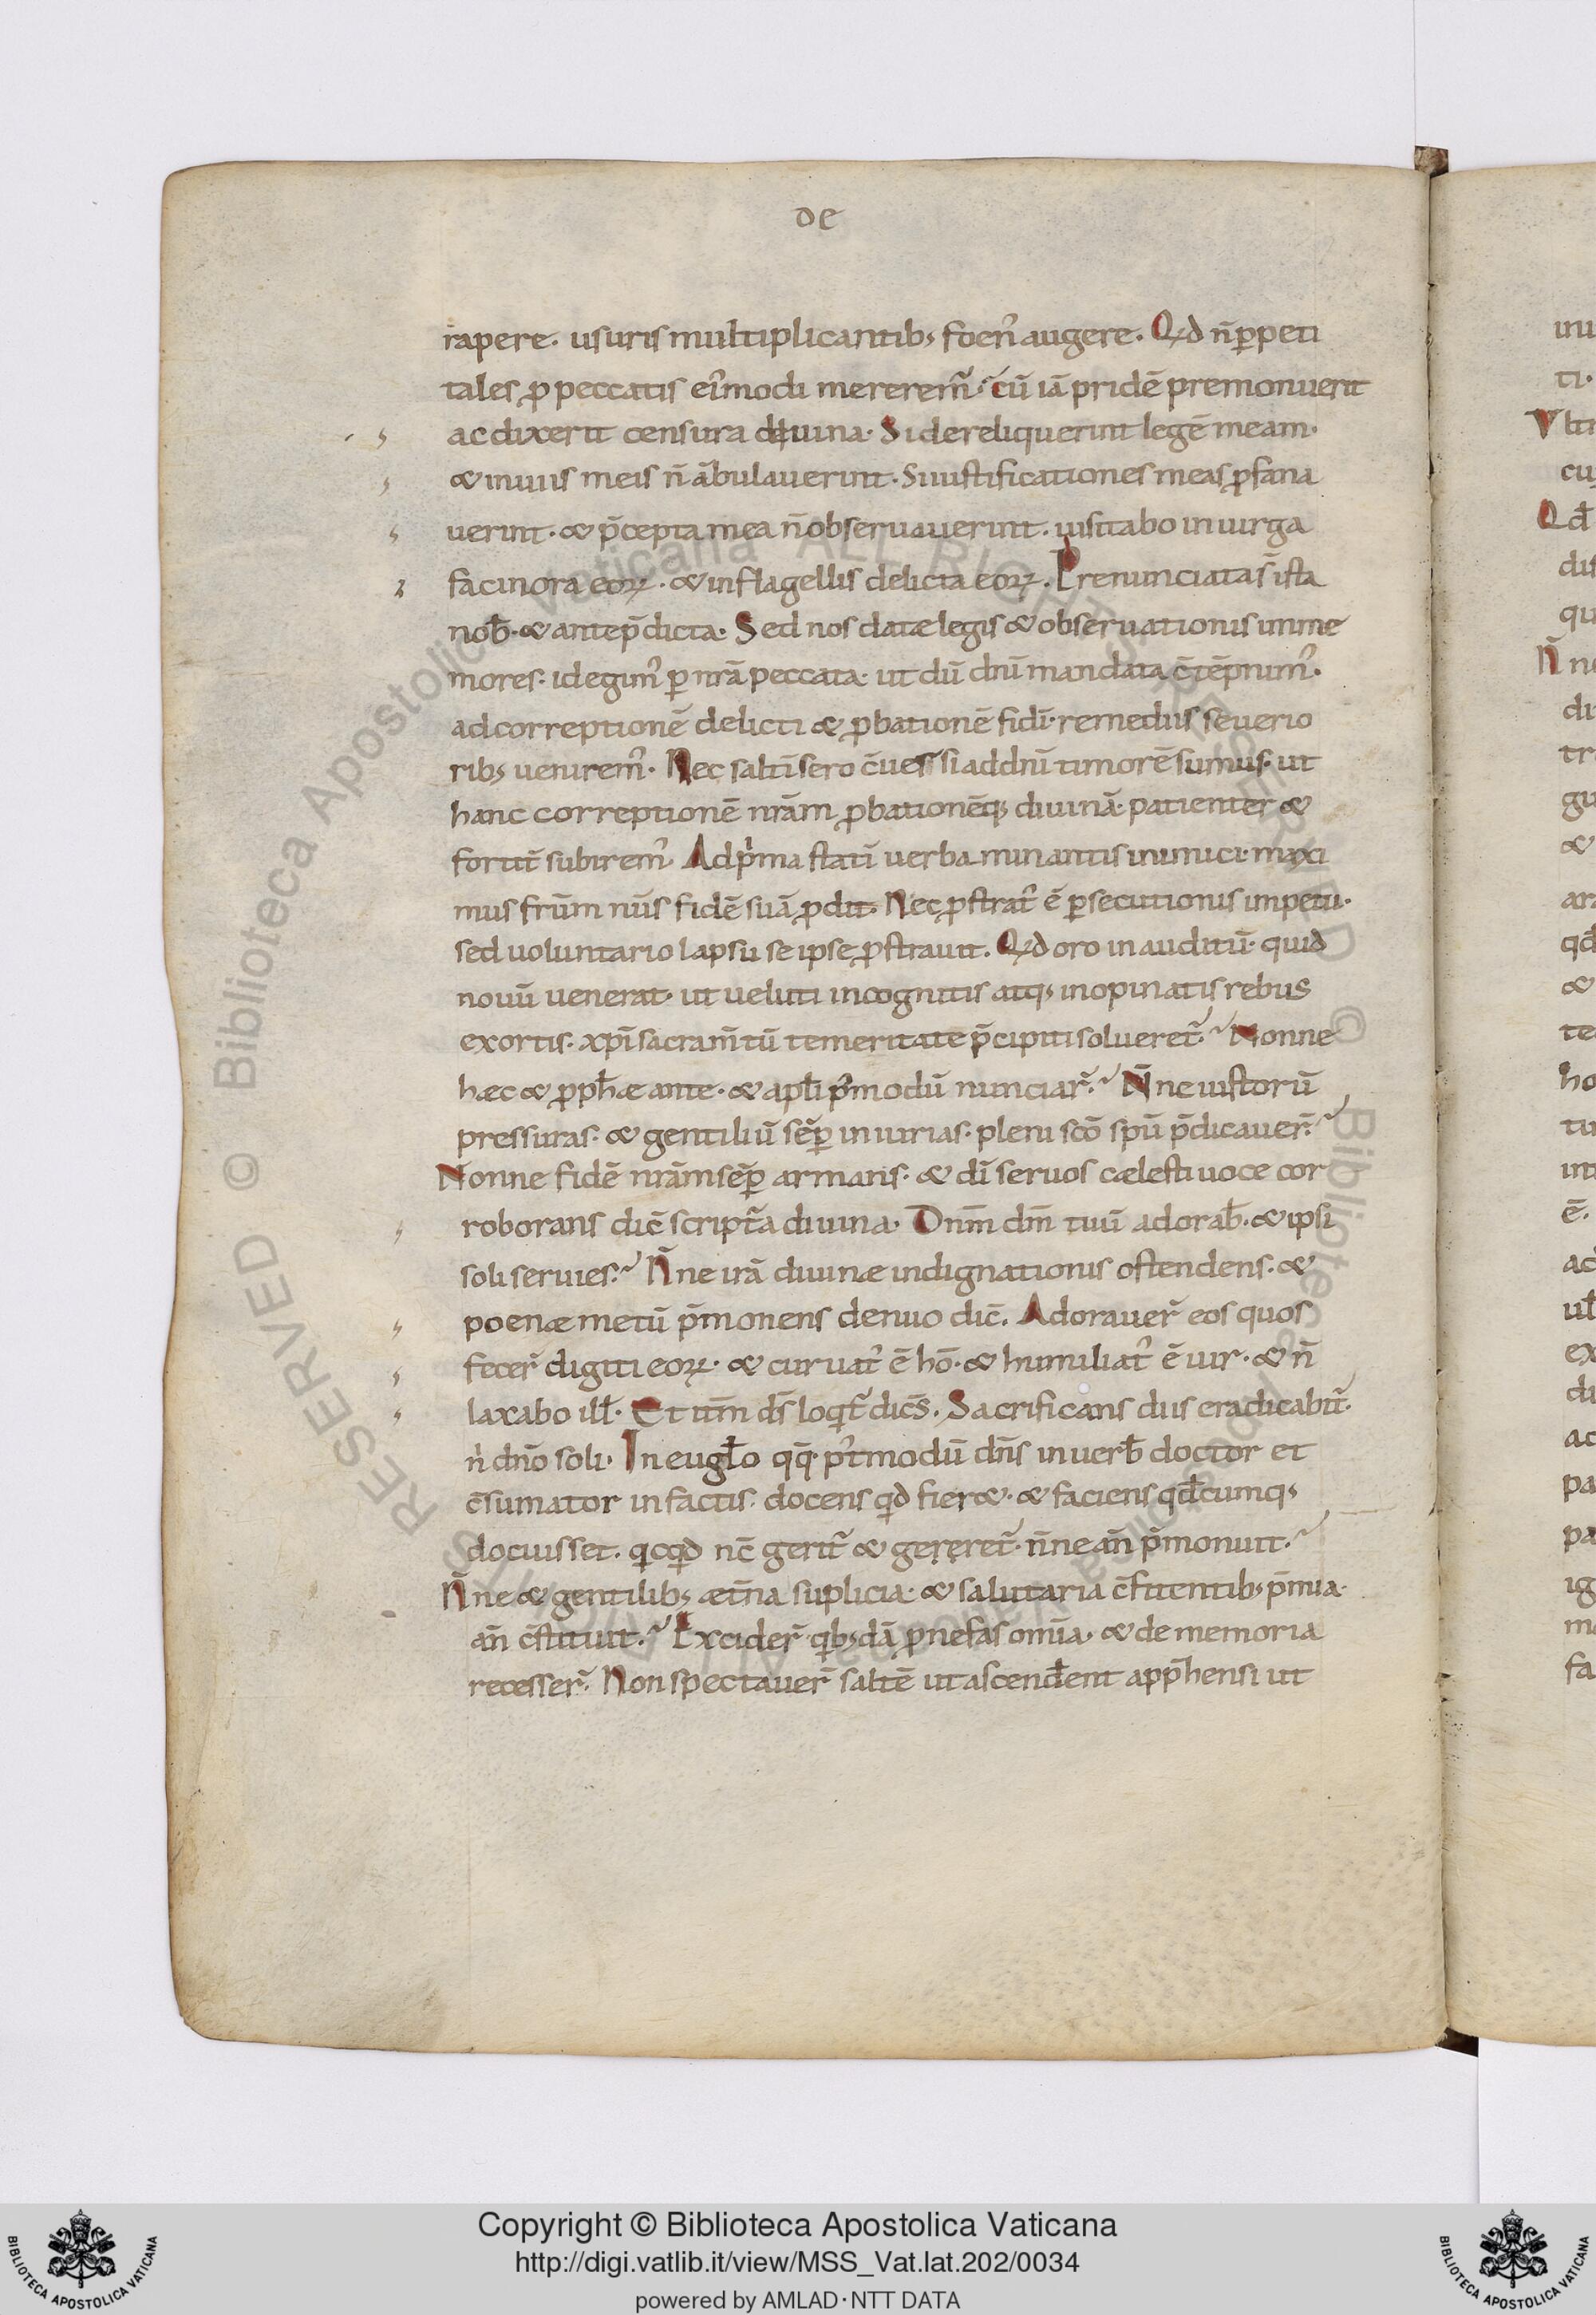 De
rapere. usuris multiplicantib; foen᾿ augere. Qd n̄ ꝑpeti
tales ꝓ peccatis ei᾿modi mererem᷒. cū iā pridē premonuerit
ac dixerit censura diuina. Si dereliquerint legē meam.
& in uiis meis n̄ ābulauerint. Si iustificationes meas ꝓfana
uerint. & p̄cepta mea n̄ obseruauerint. uisitabo in uirga
facinora eoꝝ. & in flagellis delicta eoꝝ. Prenunciata s̄ ista
nob̄. & ante p̄dicta. Sed nos datæ legis & obseruationis imme
mores. id egim᾿ ꝑ nr̄ā peccata. ut dū dn̄i mandata c̄tēpnim᾿.
ad correptionē delicti & ꝓbationē fidī. remediis seuerio
rib; uenirem᾿. Nec saltī sero c̄uersi ad dn̄i timorē sumus. ut
hanc correptionē nr̄am ꝓbationēq; diuinā. patienter &
fortit̄ subirem᾿. Ad p̍ma statī uerba minantis inimici. maxi
mus fr̄um nūs fidē suā ꝓdit. Nec ꝓstrat᾿ ē ꝑsecutionis impetu.
sed uoluntario lapsu se ipse ꝓstrauit. Qd oro inauditū. quid
nouū uenerat. ut ueluti incognitis atq; inopinatis rebus
exortis. xp̄i sacram̄tū temeritate p̄cipiti soluere᷒t. Nonne
hæc & ꝓph̄æ ante. & apl̄i p᾿modū nunciar̄. N̄ne iustorū
pressuras. & gentiliū sēꝑ iniurias. pleni sc̄o sp̄u p̄dicauer̄.
Nonne fidē nr̄am sēꝑ armans. & dī seruos cælesti uoce cor
roborans dic̄ script̄a diuina. Dn̄m dm̄ tuū adorab̄. & ipsi
soli seruies. N̄ne irā diuinæ indignationis ostendens. &
poenæ metū p̄monens denuo dic̄. Adorauer̄ eos quos
fecer̄ digiti eoꝝ. & curuat᾿ ē hō. & humiliat᾿ ē uir. & n̄
laxabo ill̄. Et itm̄ ds̄ loqt̄ dic̄s. Sacrificans diis eradicabit̄.
n̍ dn̄o soli. In eugl̄o qq̄. p᾿tmodū dn̄s in uerb̄ doctor et
c̄sumator in factis. docens qd fier&. & faciens qd̄cumq;
docuisset. qcqd nc̄ gerit̄ & gereret̄. n̄ne an̄ p̄monuit.
N̄ne & gentilib; æt̄na suplicia. & salutaria c̄fitentib; p̄mia.
an̄ c̄stituit. Excider̄ qb;dā ꝓ nefas om̄ia. & de memoria
recesser̄. Non spectauer̄ saltē ut ascend̄ent app̄hensi ut
Copyright © Biblioteca Apostolica Vaticana
http://digi.vatlib.it/view/MSS_Vat.lat.202/0034
powered by AMLAD·NTT DATA